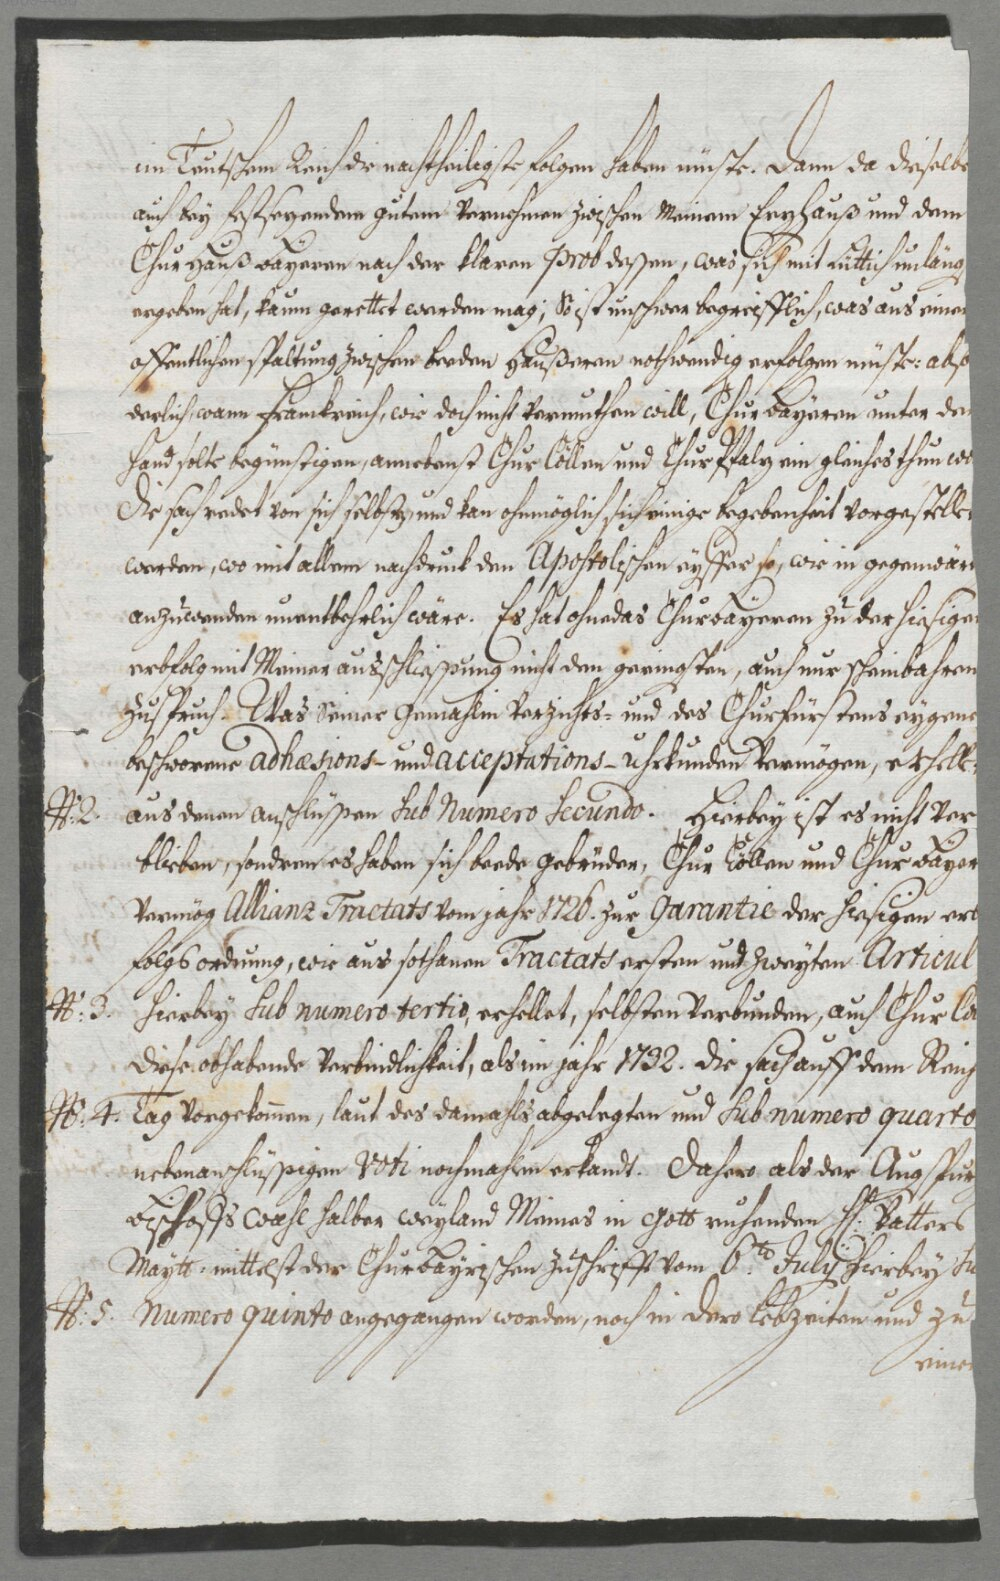 im Teutschem Reich die nachtheiligste folgen haben müste. Dann da dieselbe
auch bey festseyendem gutem Vernehmen zwischen Meinem Erzhauß und dem
Churhauß Bayeren nach der klaren prob dessen, was sich mit Lüttich unläng
ergeben hat, kaum gerettet werden mag; So ist unschwer begreifflich, was aus einer
offentlichen spaltung zwischen beeden Haüßeren nothwendig erfolgen müste: abso
derlich, wann Franckreich, wie doch nicht vermuthen will, Chur Bayeren unter der
hand solte begünstigen, annebenst Chur Cöllen und Chur Pfalz ein gleiches thun wo
Die sach redet von sich selbst, und kan ohnmöglich sich einige begebenheit vorgestelle
werden, wo mit allem nachdruck den Apostolischen eyffer so, wie in gegenwär
anzuwenden unentbehrlich wäre. Es hat ohnedas Chur Bayeren zu der hiesigen
erbfolg mit Meiner ausschliessung nicht den geringsten, auch nur scheinbahren
zuspruch. Was Seiner Gemahlin Verzichts- und des Churfürstens eygene
beschworene adhæsions- und acceptations- uhrkunden vermögen, erhelle
N: 2. aus denen anschlüssen sub Numero secundo. Hierbey ist es nicht ver
blieben, sondern es haben sich beede gebrüder, Chur Cöllen und Chur Bayer
vermög Allianz Tractats vom jahr 1726. zur Garantie der hiesigen erb
folgs ordnung, wie aus sothanen Tractats ersten und zweyten Articul
N: 3. hierbey sub numero tertio, erhellet, selbsten verbunden, auch Chur Cö
diese obhabende verbindlichkeit, als im jahr 1732. die sach auff dem Reich
N: 4. Tag vorgekommen, laut des damahls abgelegten und sub numero quarto
nebenanschlüssigen Voti nochmahlen erkandt. Dahero als der Augspurg
Bischoffs wahl halber weyland Meines in Gott ruhenden H: Vatters
Maytt. mittelst der Chur Bayrischen zuschrifft vom 6.ten July hierbey su
N: 5. Numero quinto angegangen worden, noch in dero lebzeiten und zu
einer